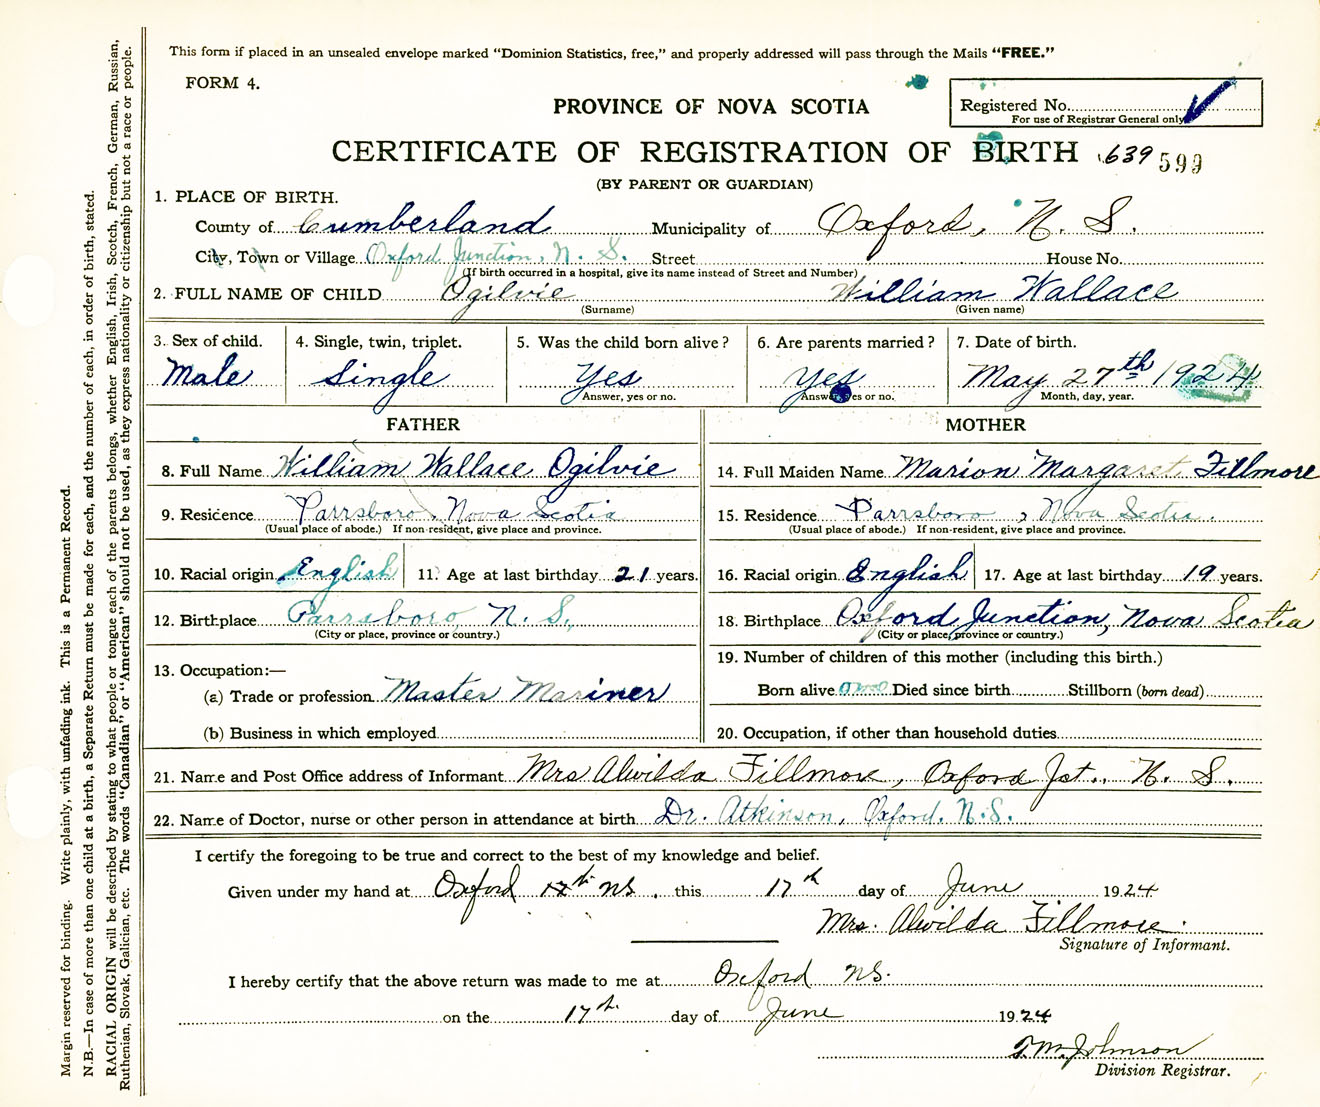 This form if placed in an unsealed envelope marked “Dominion Statistics, free,” and properly addressed will pass through the Mails “FREE.”
FORM 4.
PROVINCE OF NOVA SCOTIA
Registered No.
For use of Registrar General only
CERTIFICATE OF REGISTRATION OF BIRTH 639 599
(BY PARENT OR GUARDIAN)
1. PLACE OF BIRTH.
County of Cumberland Municipality of Oxford, N. S.
City, Town or Village Oxford Junction, N. S. Street House No.
(If birth occurred in a hospital, give its name instead of Street and Number)
2. FULL NAME OF CHILD Ogilvie William Wallace
(Surname) (Given name)
3. Sex of child. 4. Single, twin, triplet. 5. Was the child born alive? 6. Are parents married? 7. Date of birth.
Male Single Yes Yes May 27th 1924
Answer, yes or no. Answer, yes or no. Month, day, year.
FATHER MOTHER
8. Full Name William Wallace Ogilvie 14. Full Maiden Name Marion Margaret Fillmore
9. Residence Parrsboro, Nova Scotia 15. Residence Parrsboro, Nova Scotia.
(Usual place of abode.) If non-resident, give place and province. (Usual place of abode.) If non-resident, give place and province.
10. Racial origin English 11. Age at last birthday 21 years. 16. Racial origin English 17. Age at last birthday 19 years.
12. Birthplace Parrsboro, N. S., 18. Birthplace Oxford Junction, Nova Scotia
(City or place, province or country.) (City or place, province or country.)
13. Occupation:— 19. Number of children of this mother (including this birth.)
(a) Trade or profession Master Mariner Born alive one Died since birth Stillborn (born dead)
(b) Business in which employed 20. Occupation, if other than household duties
21. Name and Post Office address of Informant Mrs Alwilda Fillmore, Oxford Jct., N. S.
22. Name of Doctor, nurse or other person in attendance at birth Dr. Atkinson, Oxford, N.S.
I certify the foregoing to be true and correct to the best of my knowledge and belief.
Given under my hand at Oxford 17th NS. this 17th day of June 1924
Mrs. Alwilda Fillmore.
Signature of Informant.
I hereby certify that the above return was made to me at Oxford NS.
on the 17th. day of June 1924
T.M. Johnson
Division Registrar.
Margin reserved for binding. Write plainly, with unfading ink. This is a Permanent Record.
N.B.—In case of more than one child at a birth, a Separate Return must be made for each, and the number of each, in order of birth, stated.
RACIAL ORIGIN will be described by stating to what people or tongue each of the parents belongs, whether English, Irish, Scotch, French, German, Russian,
Ruthenian, Slovak, Galician, etc. The words “Canadian” or “American” should not be used, as they express nationality or citizenship but not a race or people.